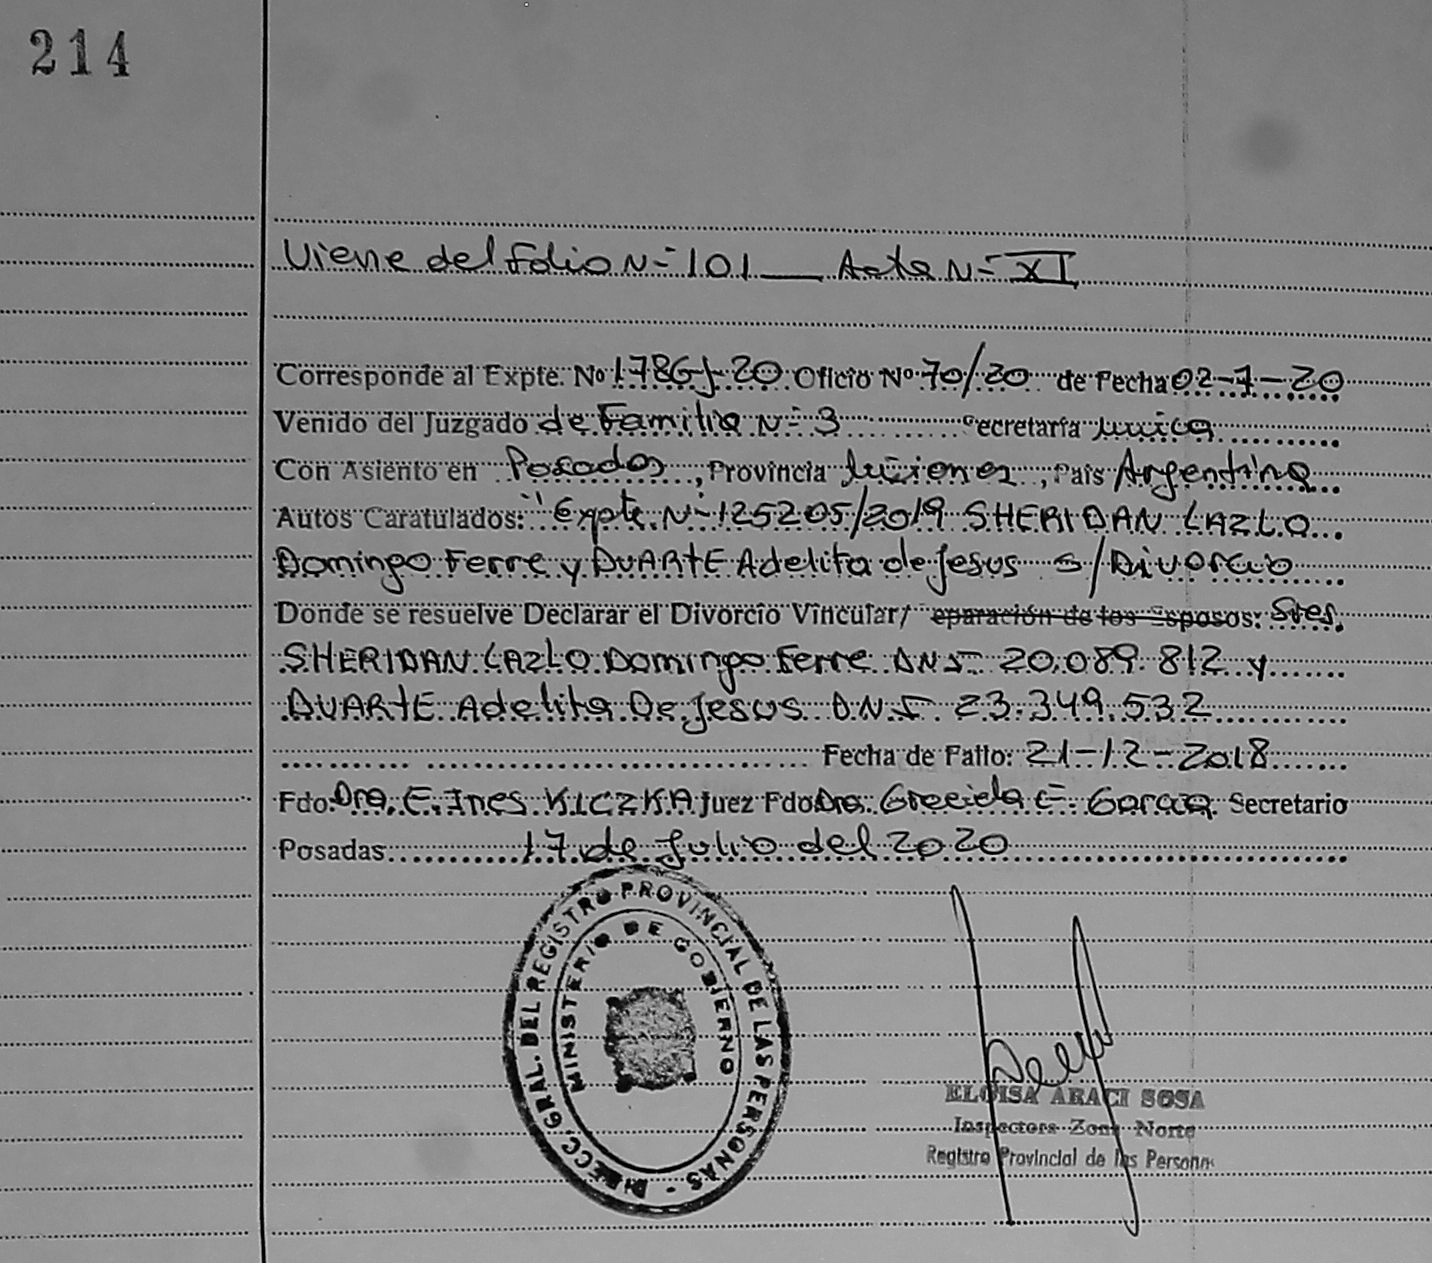 214
Viene del Folio N= 101 — Acta N= XI
Corresponde al Expte. Nº 1786-J-20 Oficio Nº 70/20 de Fecha 02-7-20
Venido del Juzgado de Familia N= 3 Secretaría única
Con Asiento en Posadas, Provincia Misiones, País Argentina
Autos Caratulados: "Expte. N= 125205/2019 SHERIDAN LAZLO
Domingo Ferre y DUARTE Adelita de Jesus s/Divorcio
Donde se resuelve Declarar el Divorcio Vincular/ eparación de los Esposos: Sres.
SHERIDAN LAZLO Domingo Ferre DNI 20.089.812 y
DUARTE Adelita De Jesus D.N.I. 23.349.532
Fecha de Fallo: 21-12-2018
Fdo: Dra. E. Ines KICZKA Juez Fdo Dra. Graciela E. Garcia Secretario
Posadas 17 de Julio del 2020
DIRECC. GRAL. DEL REGISTRO PROVINCIAL DE LAS PERSONAS -
MINISTERIO DE GOBIERNO
ELOISA ARACI SOSA
Inspectora Zona Norte
Registro Provincial de las Person